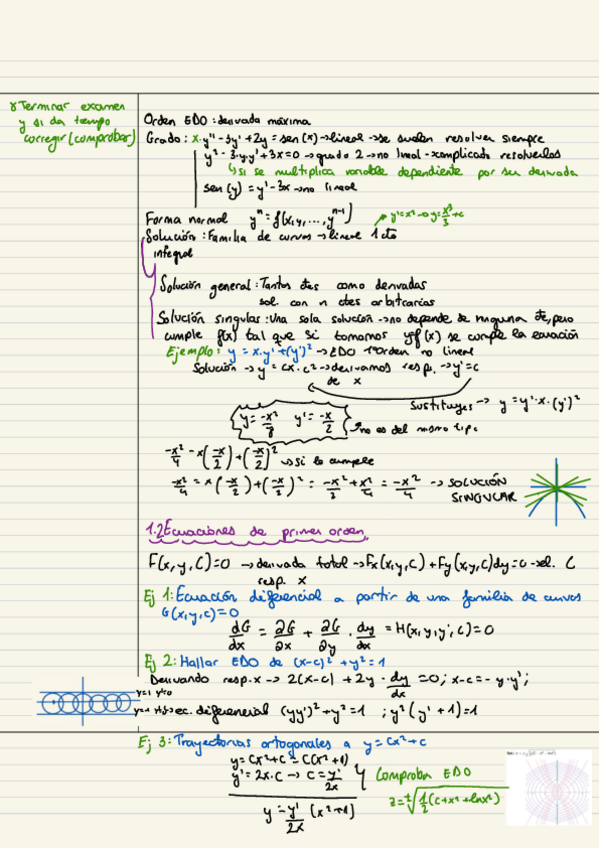 * Terminar examen
y si da tiempo
corregir (comprobar)
Orden EDO: derivada máxima
Grado: x·y'' - 3y' + 2y = sen(x) → lineal → se suelen resolver siempre
y² - 3·y·y' + 3x = 0 → grado 2 → no lineal → complicado resolverlos
↳ si se multiplica variable dependiente por su derivada
sen(y) = y' - 3x → no lineal
Forma normal yⁿ = f(x, y, ..., yⁿ⁻¹)
y' = x² → y = x³/3 + c
Solución: Familia de curvas → lineal 1 cte
integral
Solución general: Tantas ctes como derivadas
sol. con n ctes arbitrarias
Solución singular: Una sola solución → no depende de ninguna cte, pero
cumple f(x) tal que si tomamos y=f(x) se cumple la ecuación
Ejemplo: y = x·y' + (y')² → EDO 1º orden no lineal
Solución → y = cx + c² → derivamos resp. → y' = c
de x
Sustituyes → y = y'·x + (y')²
y' = -x/2
→ no es del mismo tipo
-x²/4 = x(-x/2) + (-x/2)² → si lo cumple
-x²/4 = x(-x/2) + (-x/2)² = -x²/2 + x²/4 = -x²/4 → SOLUCIÓN
SINGULAR
1.2 Ecuaciones de primer orden
F(x, y, C) = 0 → derivada total → Fx(x, y, C) + Fy(x, y, C)dy = 0 → el. C
resp. x
Ej 1: Ecuación diferencial a partir de una familia de curvas
G(x, y, c) = 0
dG/dx = ∂G/∂x + ∂G/∂y · dy/dx = H(x, y, y', C) = 0
Ej 2: Hallar EDO de (x-c)² + y² = 1
Derivando resp. x → 2(x-c) + 2y · dy/dx = 0; x-c = -y·y';
y=1 y'=0
ec. diferencial (yy')² + y² = 1 ; y²(y' + 1) = 1
Ej 3: Trayectorias ortogonales a y = Cx² + c
y = Cx² + C = C(x² + 1)
y' = 2x·C → C = y'/2x
y = y'/2x (x² + 1)
Comprobar EDO
z = ± √(1/2 (C + x² + lnx²))